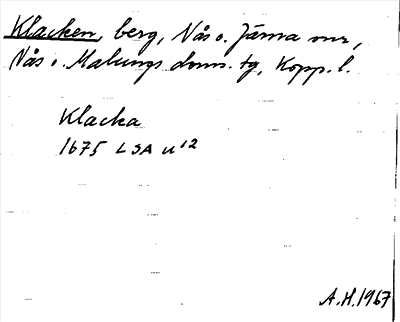 Klacken, berg, Nås o. Järna snr,
Nås o. Malungs doms. tg, Kopp. l.
Klacka
1675 LSA U 12
A.H. 1967